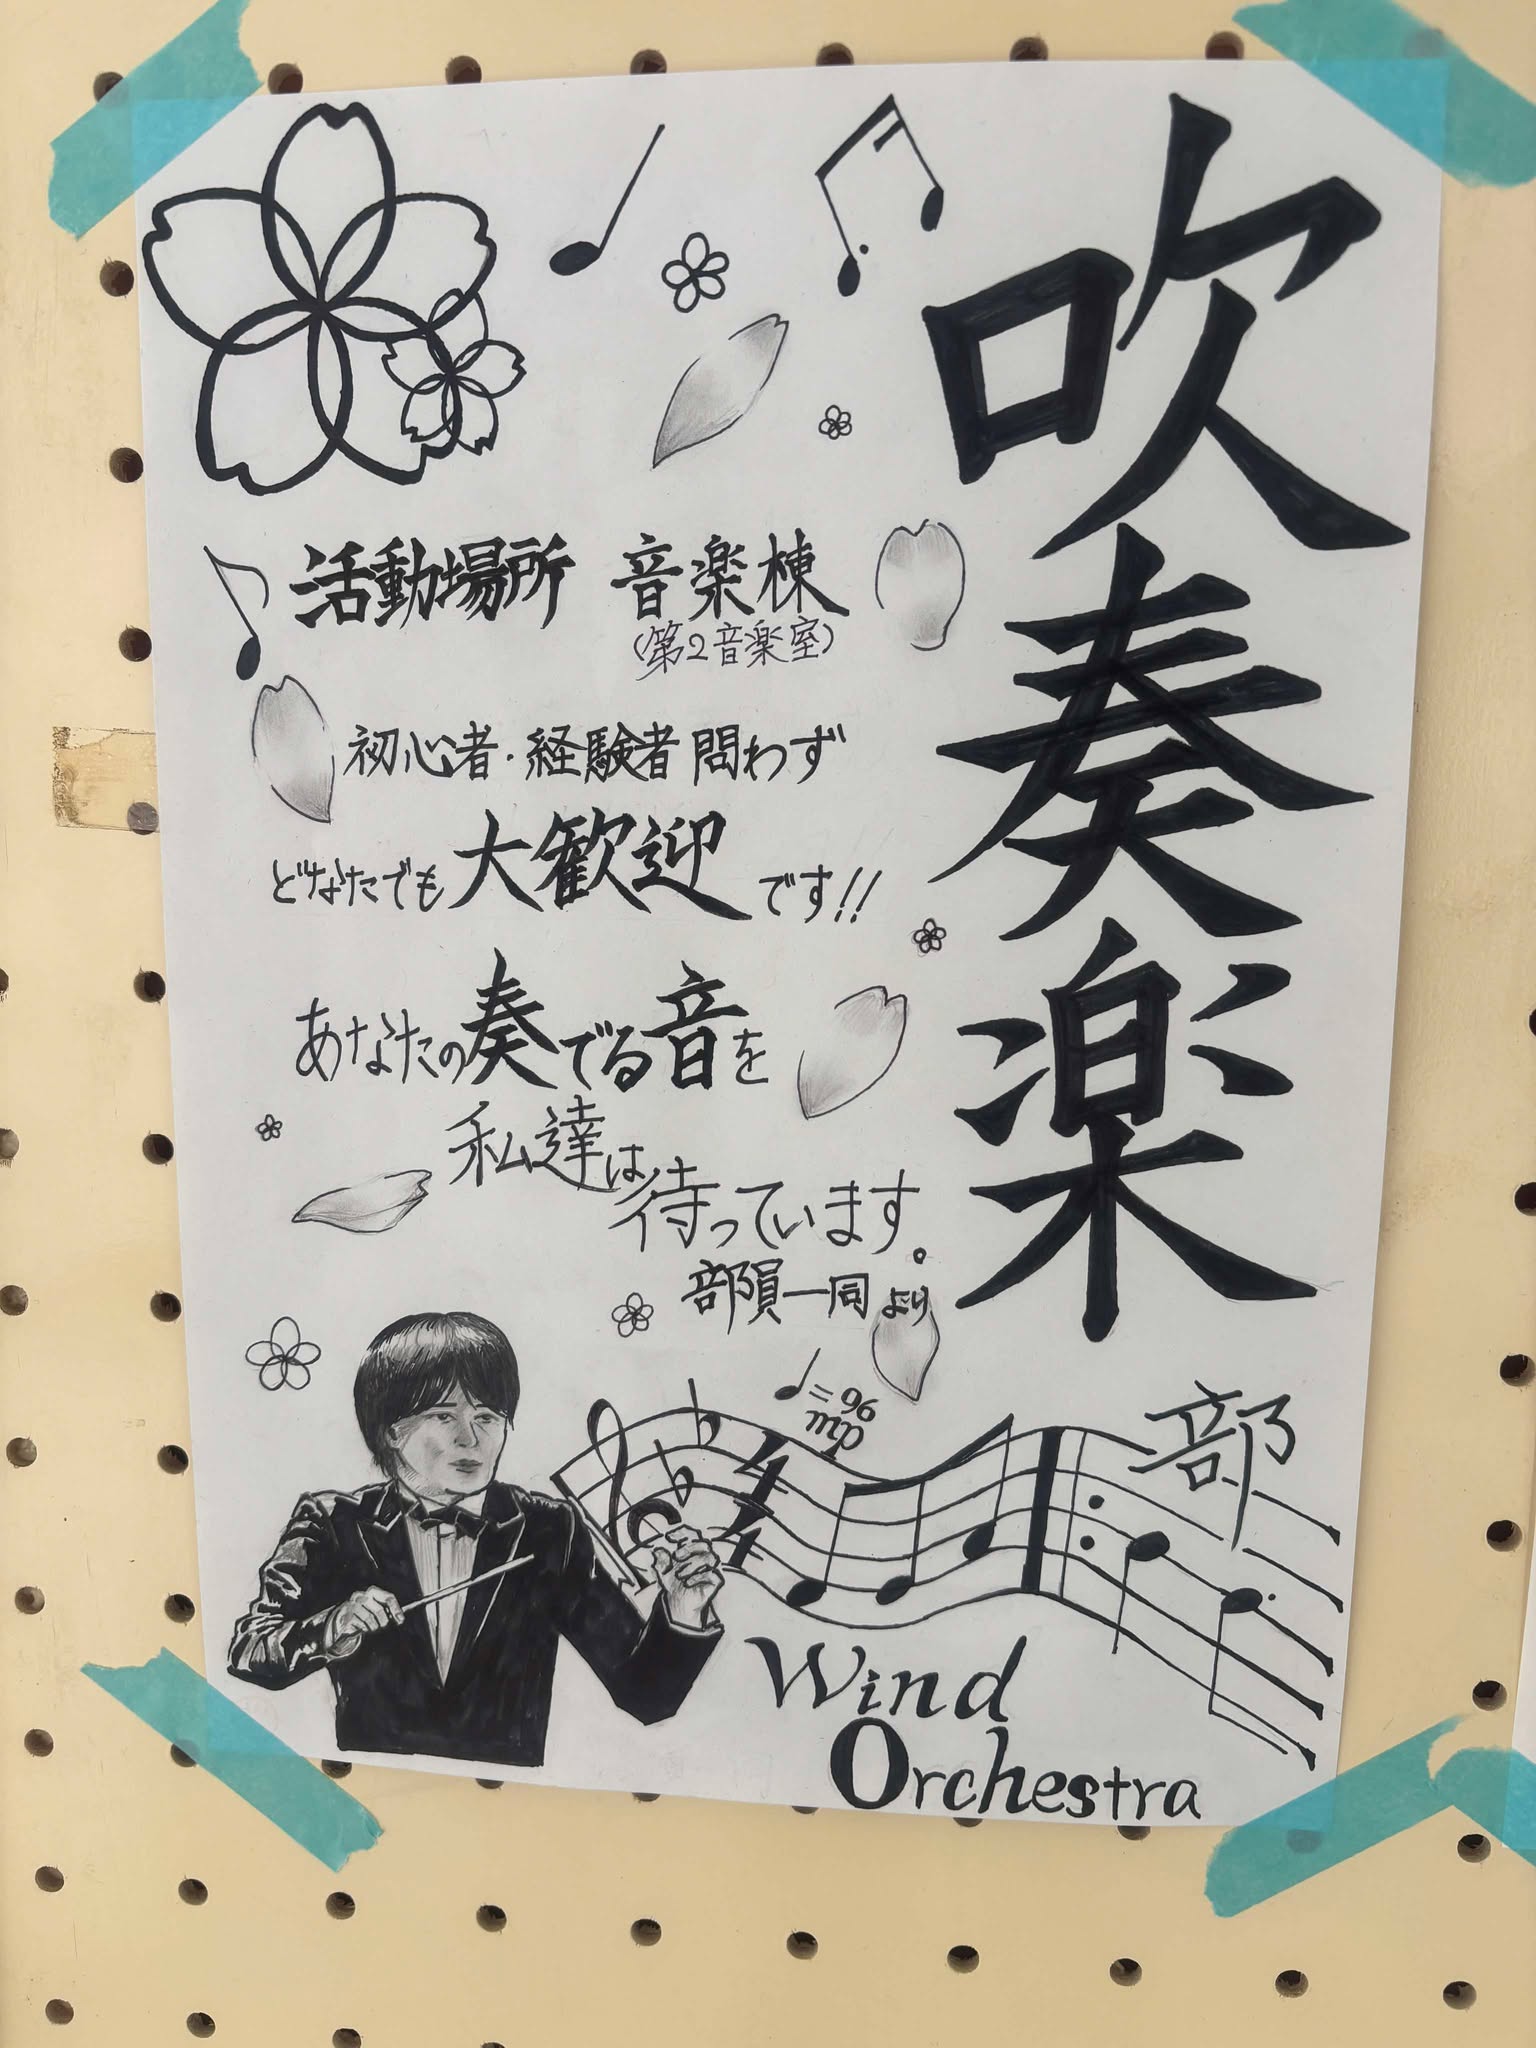 吹奏楽部
活動場所 音楽棟
(第2音楽室)
初心者・経験者問わず
どなたでも大歓迎です!!
あなたの奏でる音を
私達は
待っています。
部員一同より
♩=96
mp
Wind
Orchestra